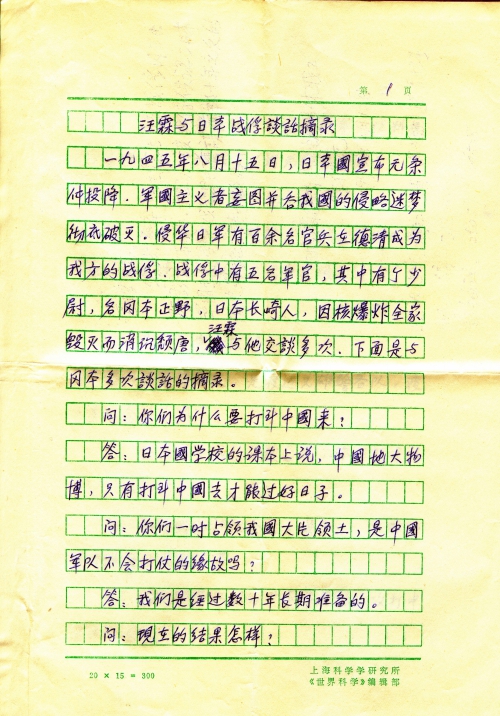 第 1 页
汪霖与日本战俘談話摘录
一九四五年八月十五日，日本國宣布无条
件投降．軍國主义者妄图并吞我國的侵略迷梦
彻底破灭．侵华日軍有百余名官兵在德清成为
我方的战俘．战俘中有五名軍官，其中有个少
尉，名冈本正野，日本长崎人，因核爆炸全家
毁灭而消沉頽唐，汪霖与他交談多次．下面是与
冈本多次談話的摘录。
问：你们为什么要打到中國来？
答：日本國学校的课本上说，中國地大物
博，只有打到中國去才能过好日子。
问：你们一时占领我國大片领土，是中國
军队不会打仗的缘故吗？
答：我们是经过数十年长期准备的。
问：現在的结果怎样？
20 × 15 = 300
上海科学学研究所
《世界科学》编辑部